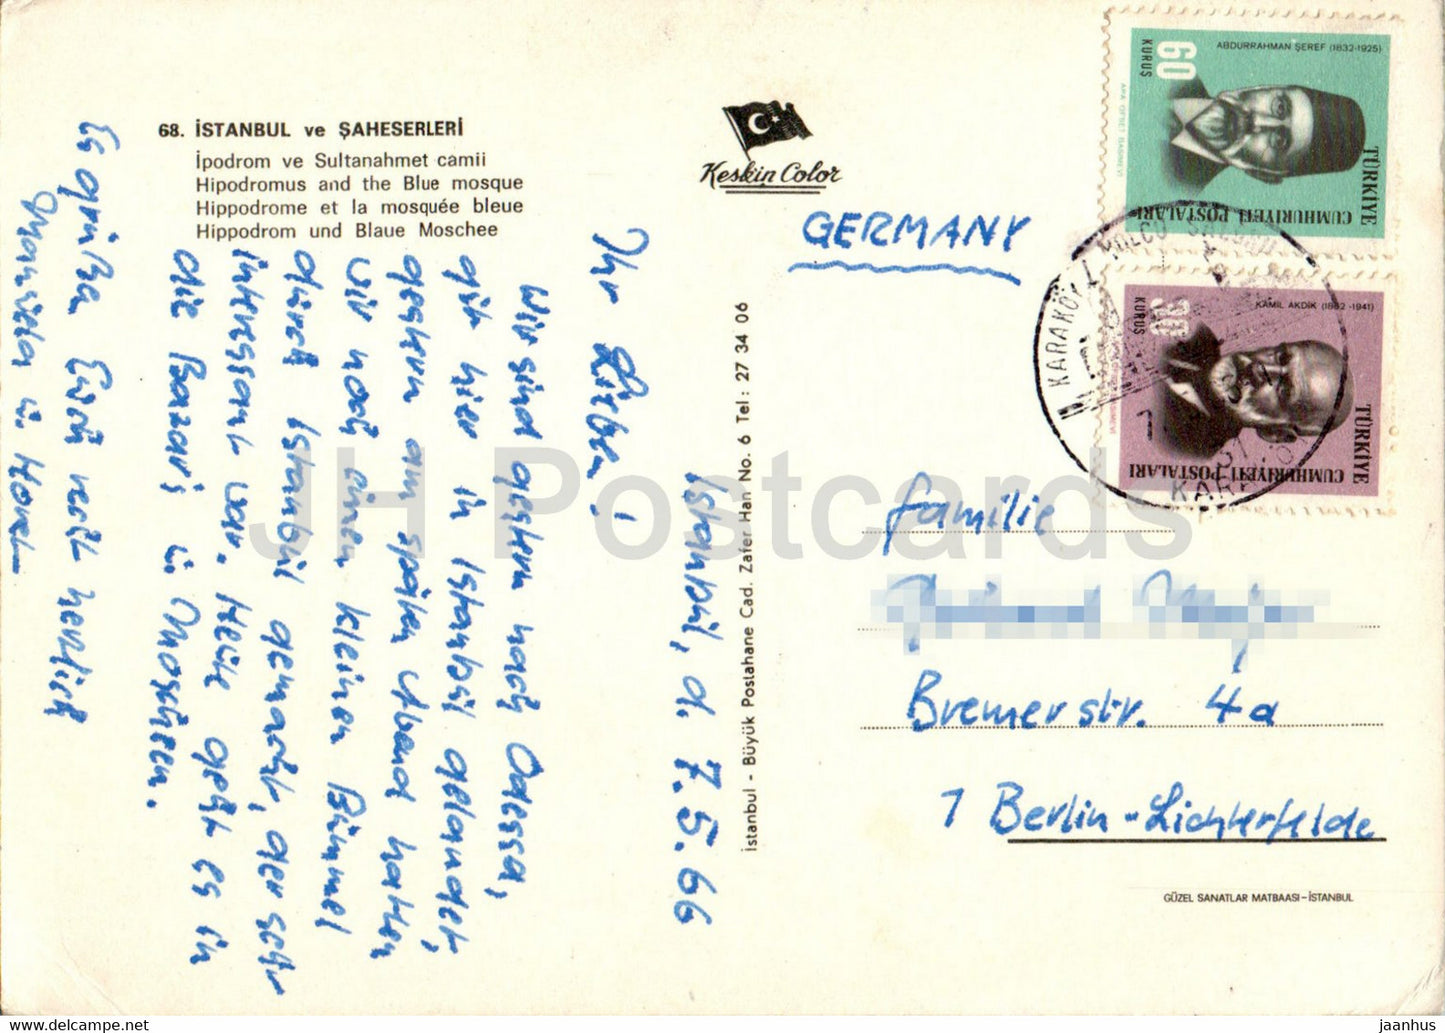 68. İSTANBUL ve ŞAHESERLERİ
İpodrom ve Sultanahmet camii
Hipodromus and the Blue mosque
Hippodrome et la mosquée bleue
Hippodrom und Blaue Moschee
Keskin Color
İstanbul - Büyük Postahane Cad. Zafer Han No. 6 Tel : 27 34 06
Istanbul, d. 7.5.66
Ihr Lieben!
Wir sind gestern nach Odessa,
gut hier in Istanbul gelandet,
gestern am späten Abend hatten
wir noch einen kleinen Bummel
durch Istanbul gemacht, der sehr
interessant war. Heute geht es in
die Bazar's u. Moscheen.
Es grüßen Euch recht herzlich
Manuela u. Horst
GERMANY
Familie
Bremerstr. 4a
1 Berlin-Lichterfelde
GÜZEL SANATLAR MATBAASI-İSTANBUL
ABDURRAHMAN ŞEREF (1832-1925)
60
KURUŞ
APA OFSET BASIMEVİ
TÜRKİYE
CUMHURİYETİ POSTALARI
KAMİL AKDİK (1862-1941)
KURUŞ
TÜRKİYE
CUMHURİYETİ POSTALARI
KARAKÖY
JH Postcards
jaanhus - delcampe.net